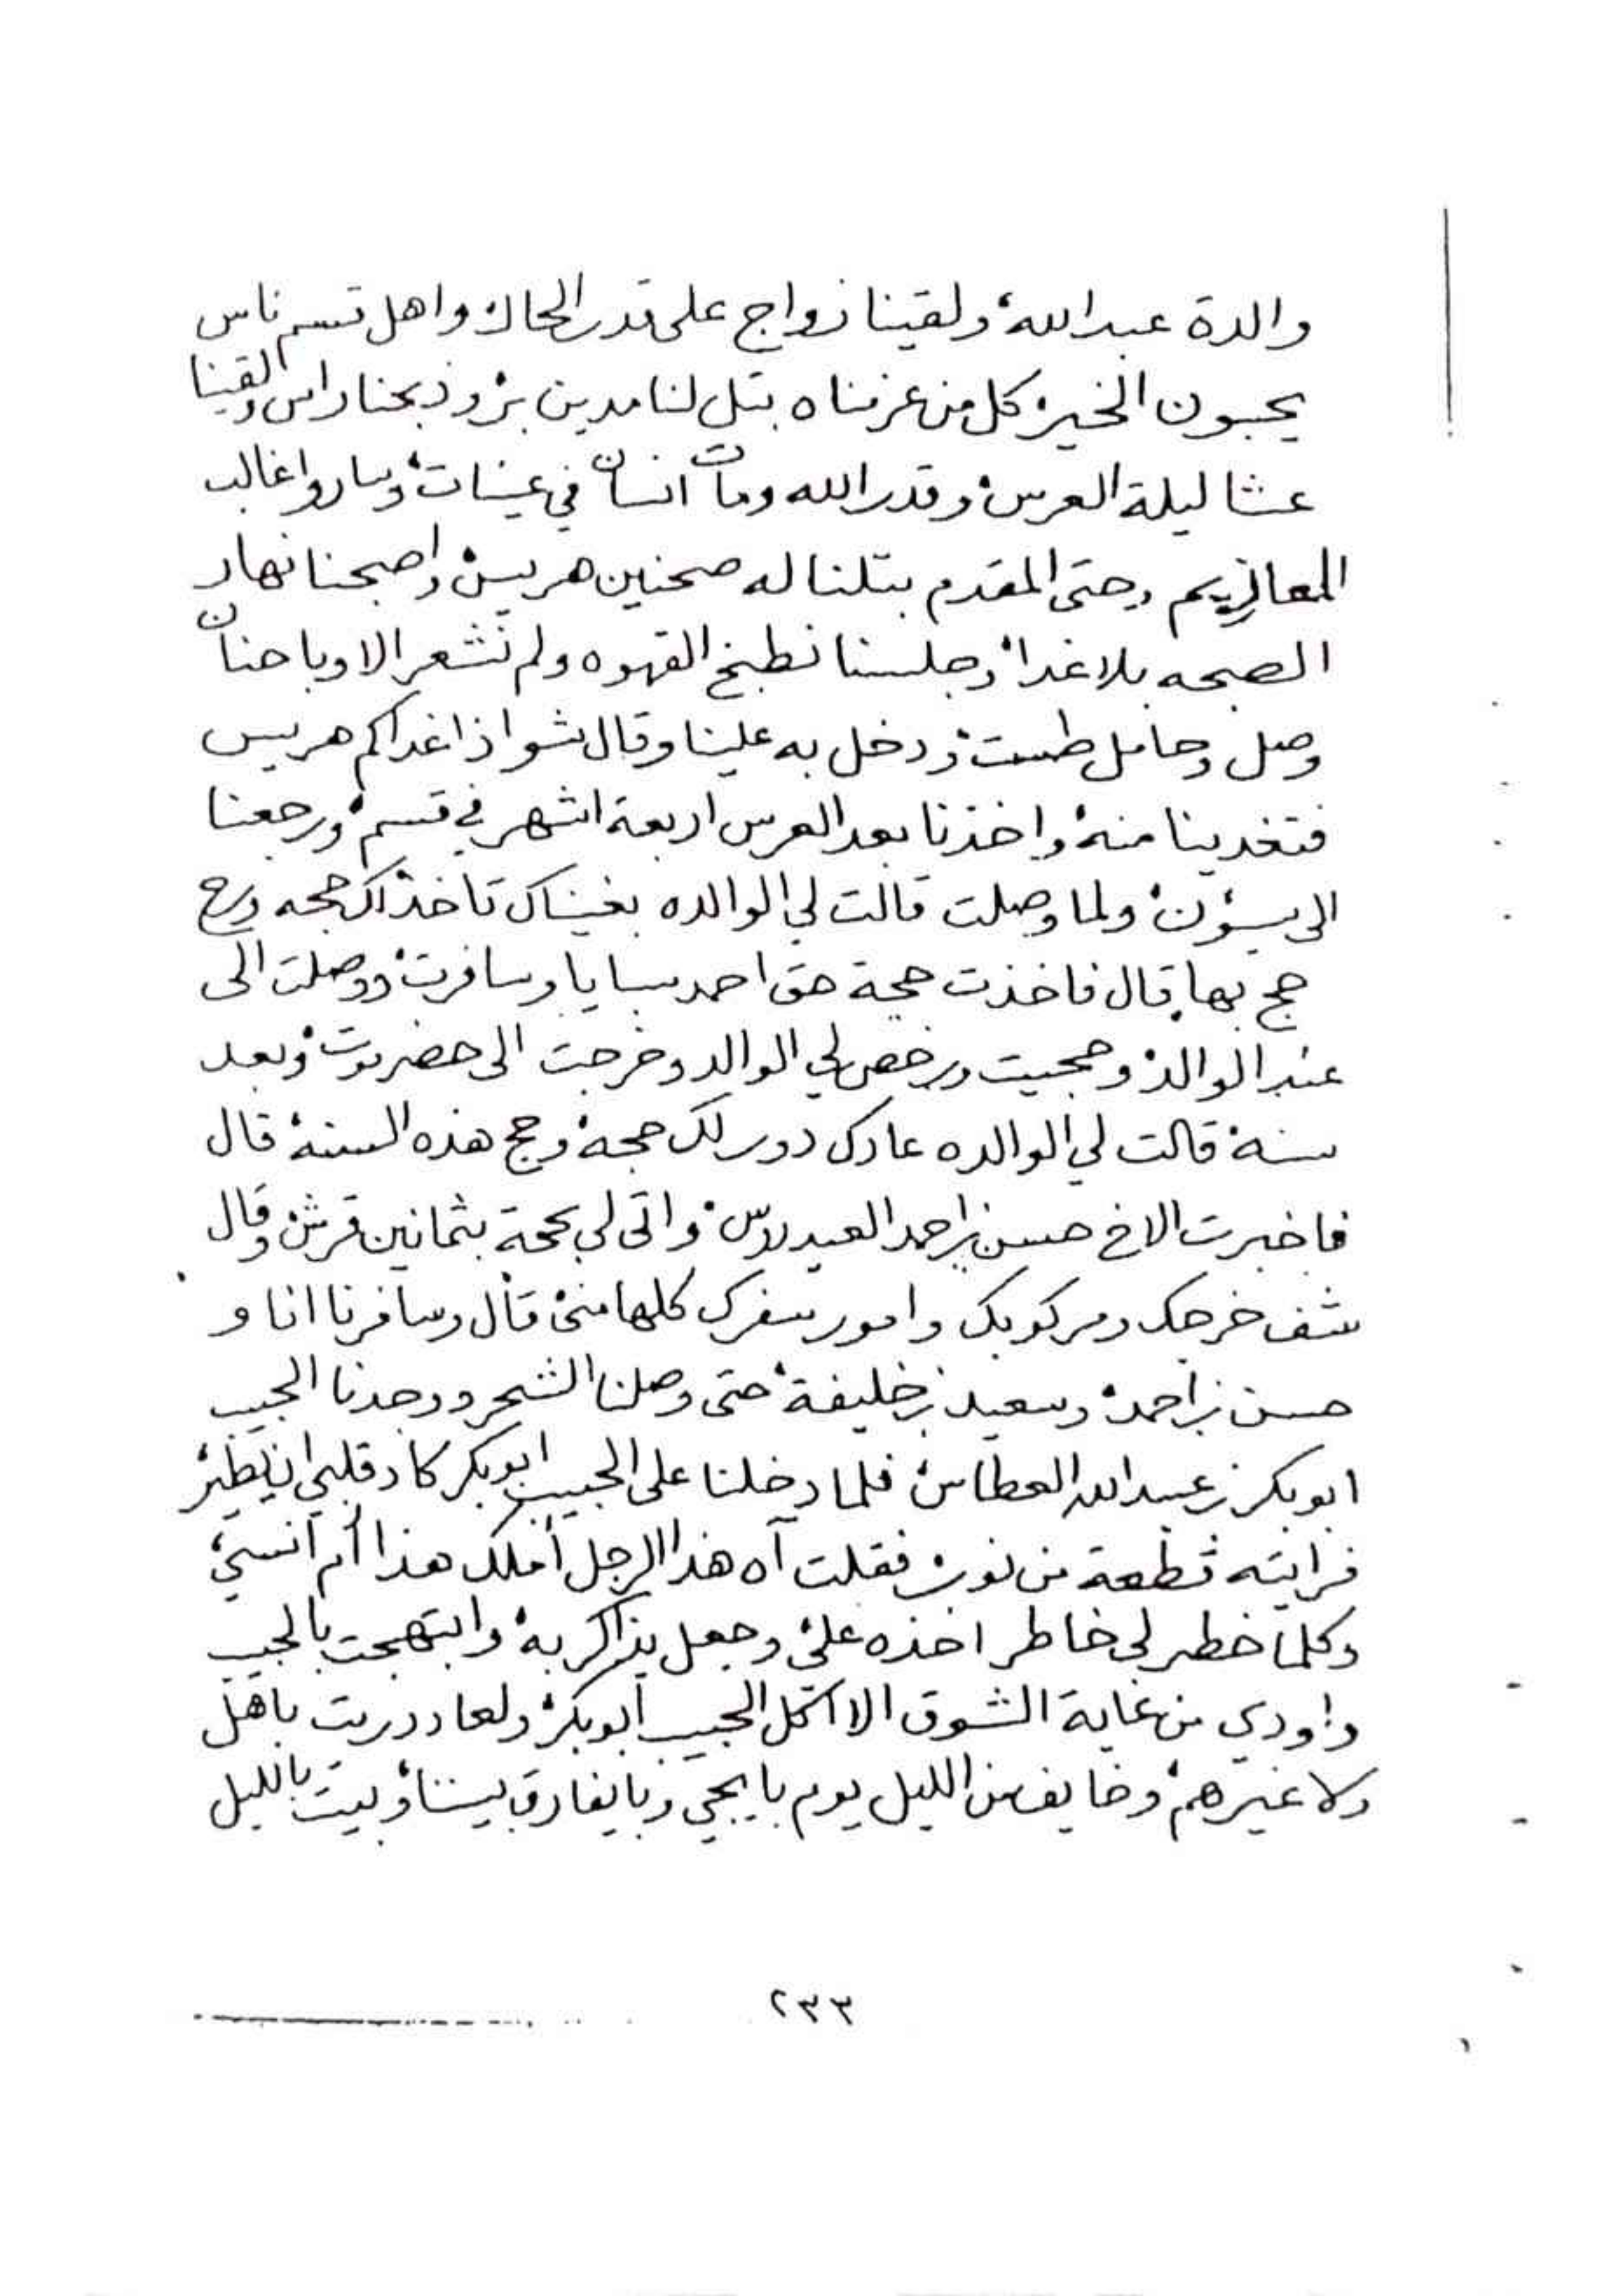 والدة عبدالله، ولقينا زواج على قدر الحال، واهل قسم ناس
يحبون الخير، كل من عرفناه بتل لنا مدين بر، وذبحنا راس والقينا
عشا ليلة العرس، وقدر الله ومات انسان في عينات، وساروا غالب
المعازيم، وحتى المقدم بتلنا له صحنين هريس، واصبحنا نهار
الصبحه بلا غدا، وجلسنا نطبخ القهوه ولم نشعر الا وباحنان
وصل وحامل طست، ودخل به علينا وقال شوا ذا غداكم هريس
فتغدينا منه، واخذنا بعد العرس اربعة اشهر في قسم، ورجعنا
الى سيؤن، ولما وصلت قالت لي الوالده بغيناك تاخذ لك حجه ورح
حج بها، قال فاخذت حجة حق احمد بسايا وسافرت، ووصلت الى
عند الوالد، وحجيت ورخص لي الوالد وخرجت الى حضرموت، وبعد
سنة قالت لي الوالده عادك دور لك حجة، وحج هذه السنة، قال
فاخبرت الاخ حسن بن احمد العيدروس، واتى لي بحجة بثمانين قرش، وقال
شف خرجك ومركوبك وامور سفرك كلها مني، قال وسافرنا انا و
حسن بن احمد، وسعيد بن خليفة، حتى وصلنا الشحر ووجدنا الحبيب
ابوبكر بن عبدالله العطاس، فلما دخلنا على الحبيب ابوبكر كاد قلبي ان يطير
فرايته قطعة من نور، فقلت آه هذا الرجل أملك هذا أم انسي،
وكلما خطر لي خاطر اخذه علي، وجعل يذاكر به، وابتهجت بالحبيب
واودي من غاية الشوق الا آكل الحبيب أبوبكر، ولعاد دريت باهل
ولا غيرهم، وخايف من الليل يوم بايجي وبايفارق بيننا، وبيت بالليل
٢٣٣